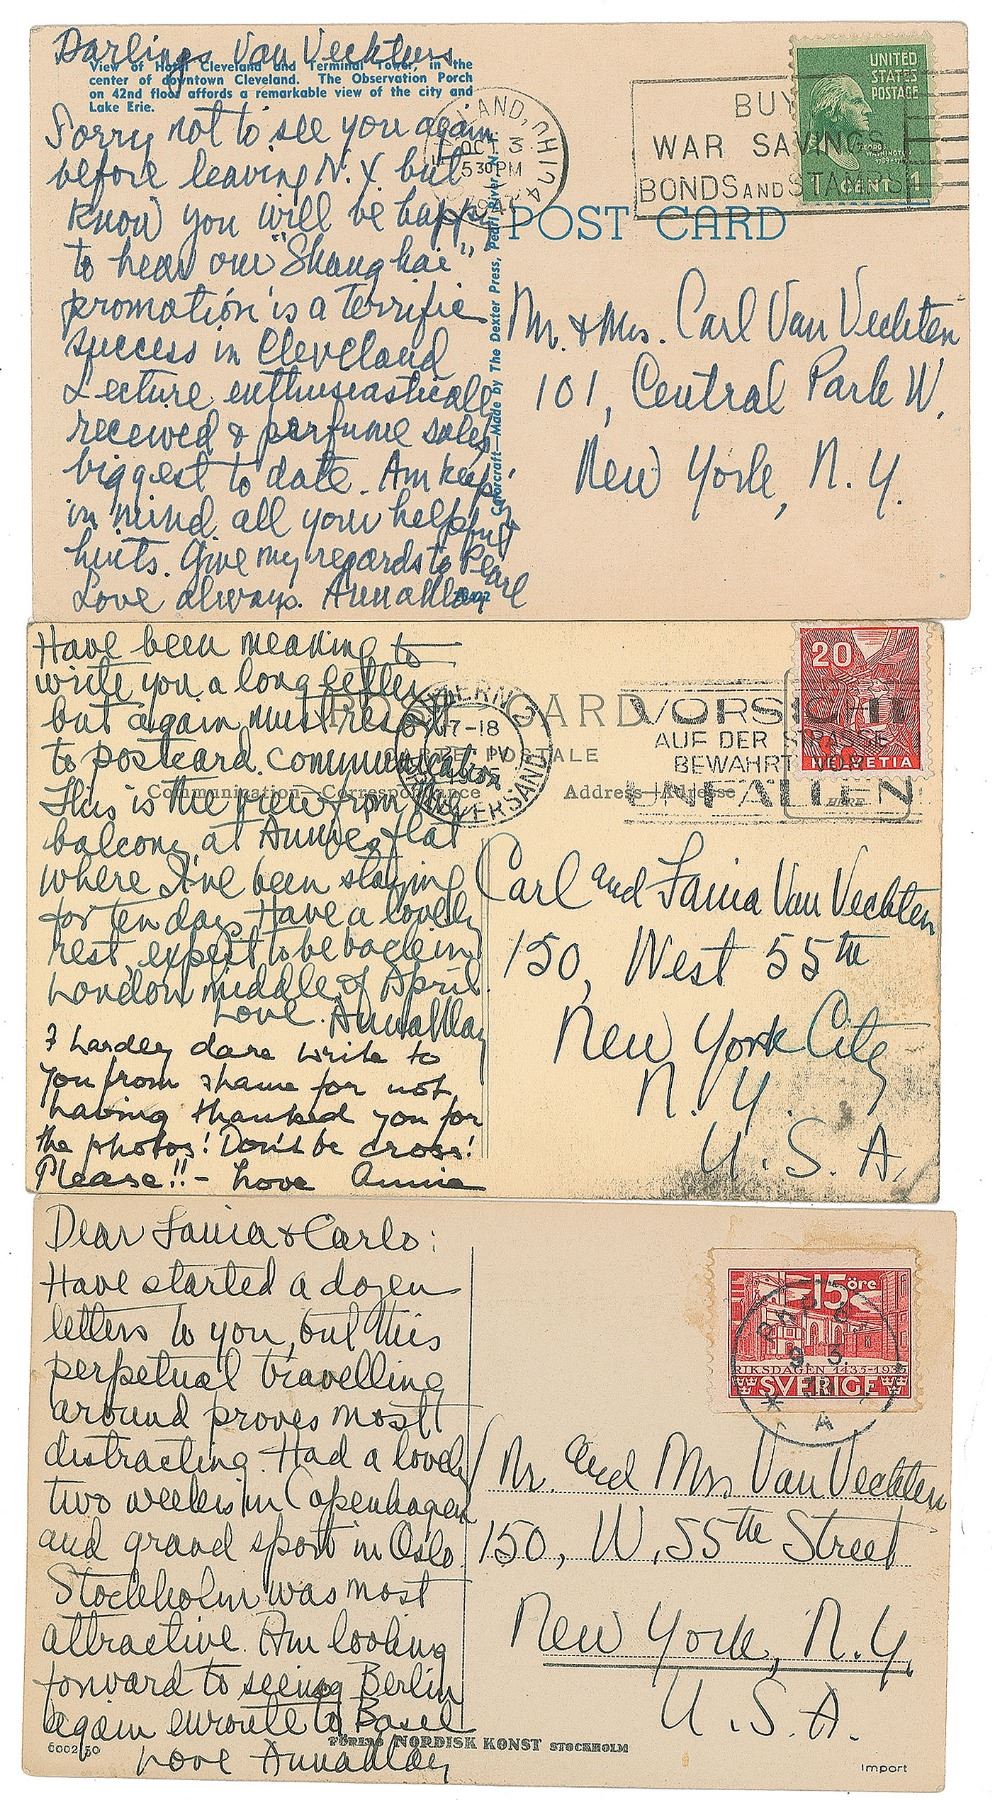 Darlings Van Vechtens
View of Hotel Cleveland and Terminal Tower, in the
center of downtown Cleveland. The Observation Porch
on 42nd floor affords a remarkable view of the city and
Lake Erie.
Sorry not to see you again
before leaving N.Y. but
know you will be happy
to hear our "Shanghai"
promotion is a terrific
success in Cleveland
Lecture enthusiastically
received & perfume sales
biggest to date. Am keep'
in mind all your helpful
hints. Give my regards to Pearl
Love always. AnnaMay
OCT 3
5 30 PM
BUY
WAR SAVINGS
BONDS AND STAMPS
UNITED
STATES
POSTAGE
1 CENT 1
POST CARD
Colorcraft—Made by The Dexter Press, Pearl River, N.Y.
Mr. & Mrs. Carl Van Vechten
101, Central Park W.
New York, N.Y.
Have been meaning to
write you a long letter
but again must resort
to postcard communication
This is the view from the
balcony at Annie's flat
where I've been staying
for ten days. Have a lovely
rest, expect to be back in
London middle of April.
Love. AnnaMay
I hardly dare write to
you from shame for not
having thanked you for
the photos! Don't be cross!
Please!! - Love Annie
POST CARD
CARTE POSTALE
Communication—Correspondance
Address—Adresse
BERN
17-18
IV
VORSICHT
AUF DER STRASSE
BEWAHRT VOR
UNFÄLLEN
20
HELVETIA
Carl and Fania Van Vechten
150, West 55th
New York City
N.Y.
U.S.A.
Dear Fania & Carlo:
Have started a dozen
letters to you, but this
perpetual travelling
around proves most
distracting. Had a lovely
two weeks in Copenhagen
and grand sport in Oslo.
Stockholm was most
attractive. Am looking
forward to seeing Berlin
again enroute to Basel
Love AnnaMay
6002/50
NORDISK KONST STOCKHOLM
Import
15 öre
RIKSDAGEN 1435-1935
SVERIGE
9. 3.
A
Mr. and Mrs Van Vechten
150, W. 55th Street
New York, N.Y.
U.S.A.